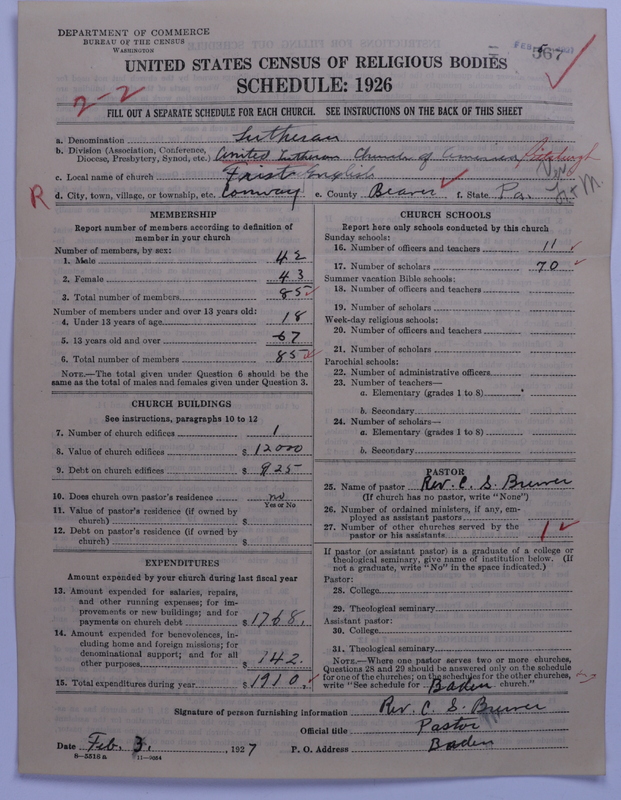 DEPARTMENT OF COMMERCE
BUREAU OF THE CENSUS
WASHINGTON
567
UNITED STATES CENSUS OF RELIGIOUS BODIES
SCHEDULE: 1926
2-2
FILL OUT A SEPARATE SCHEDULE FOR EACH CHURCH. SEE INSTRUCTIONS ON THE BACK OF THIS SHEET
a. Denomination Lutheran
b. Division (Association, Conference, Diocese, Presbytery, Synod, etc.) United Lutheran Church of America Pittsburgh
c. Local name of church First English
R d. City, town, village, or township, etc. Conway e. County Beaver f. State Pa.
MEMBERSHIP
Report number of members according to definition of
member in your church
Number of members, by sex:
1. Male 42
2. Female 43
3. Total number of members 85
Number of members under and over 13 years old:
4. Under 13 years of age 18
5. 13 years old and over 67
6. Total number of members 85
NOTE.—The total given under Question 6 should be
same as the total of males and females given under Question 3.
CHURCH BUILDINGS
See instructions, paragraphs 10 to 12
7. Number of church edifices 1
8. Value of church edifices $ 12000
9. Debt on church edifices $ 925
10. Does church own pastor's residence no
Yes or No
11. Value of pastor's residence (if owned by
church) $
12. Debt on pastor's residence (if owned by
church) $
EXPENDITURES
Amount expended by your church during last fiscal year
13. Amount expended for salaries, repairs,
and other running expenses; for im-
provements or new buildings; and for
payments on church debt $ 1768.
14. Amount expended for benevolences, in-
cluding home and foreign missions; for
denominational support; and for all
other purposes $ 142.
15. Total expenditures during year $ 1910.
CHURCH SCHOOLS
Report here only schools conducted by this church
Sunday schools:
16. Number of officers and teachers 11
17. Number of scholars 70
Summer vacation Bible schools:
18. Number of officers and teachers
19. Number of scholars
Week-day religious schools:
20. Number of officers and teachers
21. Number of scholars
Parochial schools:
22. Number of administrative officers
23. Number of teachers—
a. Elementary (grades 1 to 8)
b. Secondary
24. Number of scholars—
a. Elementary (grades 1 to 8)
b. Secondary
PASTOR
25. Name of pastor Rev. C. S. Brewer
(If church has no pastor, write "None")
26. Number of ordained ministers, if any, em-
ployed as assistant pastors
27. Number of other churches served by the
pastor or his assistants 1
If pastor (or assistant pastor) is a graduate of a college or
theological seminary, give name of institution below. (If
not a graduate, write "No" in the space indicated.)
Pastor:
28. College
29. Theological seminary
Assistant pastor:
30. College
31. Theological seminary
NOTE.—Where one pastor serves two or more churches,
Questions 28 and 29 should be answered only on the schedule
for one of the churches; on the schedules for the other churches,
write "See schedule for Baden church."
Signature of person furnishing information Rev. C. S. Brewer
Official title Pastor
Date Feb. 3, 1927 P. O. Address Baden
8-5318 a 11-9054